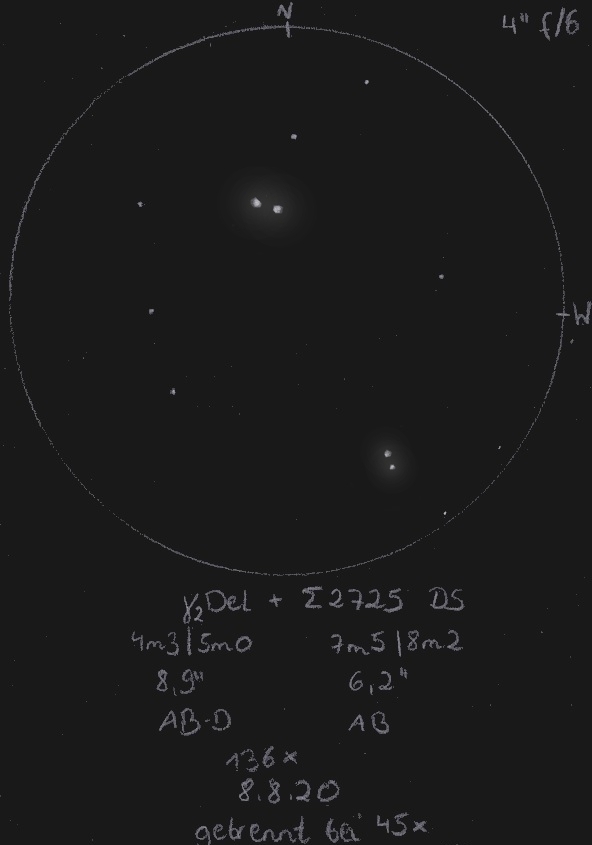 N
4" f/6
W
γ2 Del + Σ2725 DS
4m3|5m0 7m5|8m2
8,9" 6,2"
AB-D AB
136x
8.8.20
getrennt bei 45x